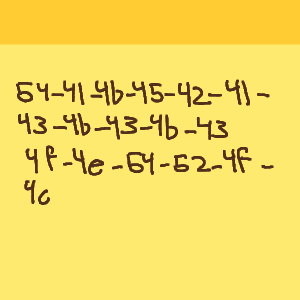 54-41-4b-45-42-41-
43-4b-43-4b-43
4f-4e-54-52-4f-
4c